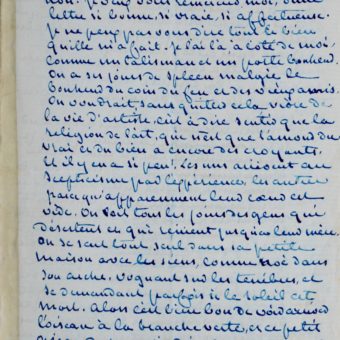 non. Je veux vous remercier moi, d'une
lettre si bonne, si vraie, si affectueuse.
Je ne peux pas vous dire tout le bien
qu'elle m'a fait. Je l'ai là à côté de moi,
comme un talisman et un porte bonheur.
On a ses jours de spleen malgré le
bonheur du coin du feu et des vieux amis.
On voudrait, sans quitter cela vivre de
la vie d'artiste, c'est à dire sentir que la
religion de l'art, qui n'est que l'amour du
vrai et du bien a encore des croyants.
et il y en a si peu! Les uns arrivent au
scepticisme par l'expérience, les autres
parcequ'apparemment leur cœur est
vide. On voit tous les jours des gens qui
désertent ce qui renient jusqu'à leur mère.
On se sent tout seul dans sa petite
maison avec les siens, comme noé dans
son arche, voguant sur les ténèbres, et
se demandant parfois si le soleil est
mort. Alors c'est bien bon de voir arriver
l'oiseau à la branche verte, et ce petit